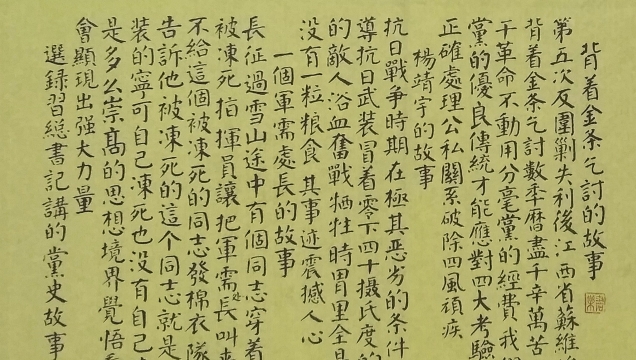 背着金条乞討的故事
第五次反圍剿失利後江西省蘇維
背着金条乞討數年曆盡千辛萬苦
干革命不動用分毫黨的經費我
黨的優良傳統才能應對四大考驗
正確處理公私關系破除四風頑疾
楊靖宇的故事
抗日戰争時期在極其恶劣的条件
導抗日武装冒着零下四十摄氏度的
的敵人浴血奮戰牺牲時胃里全是
没有一粒粮食其事迹震撼人心
一個軍需處長的故事
長征過雪山途中有個同志穿着
被凍死指揮員讓把軍需處長叫来
不給這個被凍死的同志發棉衣隊
告訴他被凍死的這个同志就是
装的寧可自己凍死也没有自己
是多么崇高的思想境界覺悟
會顯現出强大力量
選録習總書記講的黨史故事